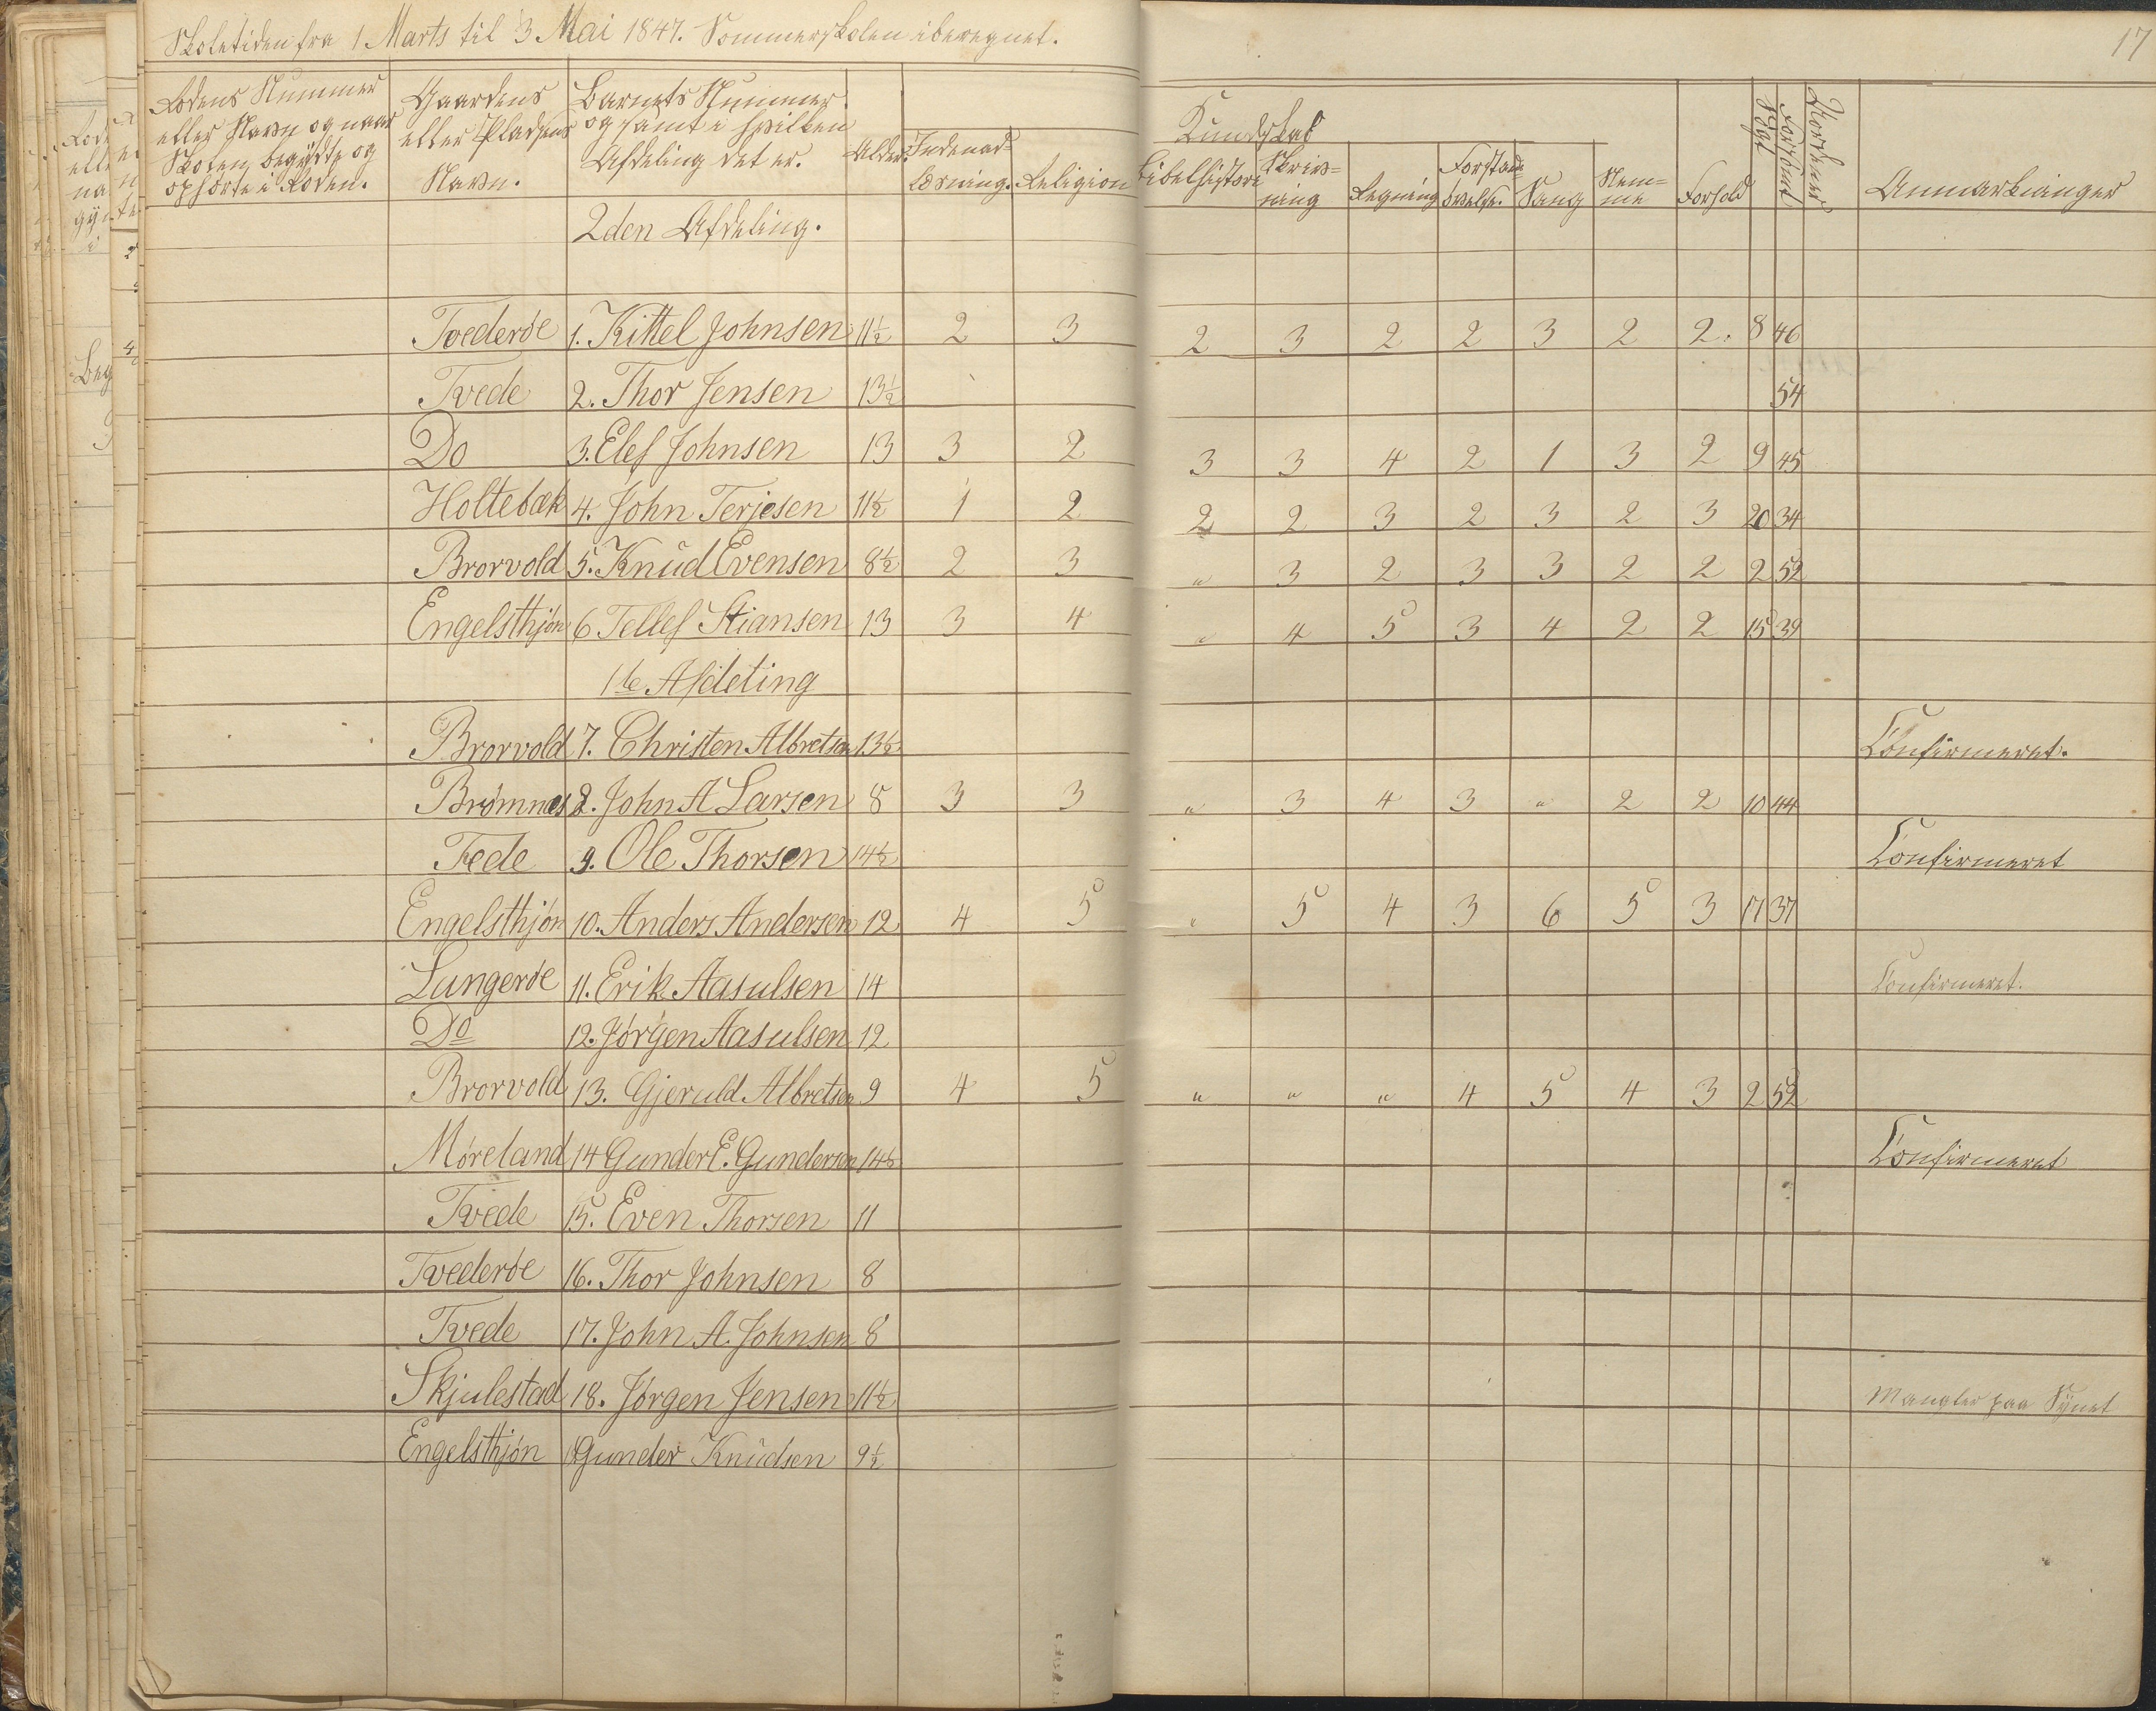 Skoletiden fra 1 Marts til 3 Mai 1847. Sommerskolen iberegnet.
17
Rodens Nummer eller Navn og naar Skolen begyndte og ophørte i Roden.
Gaardens eller Pladsens Navn.
Barnets Nummer og samt i hvilken Afdeling det er.
Alder.
Indenad=læsning.
Religion
Kundskab
Bibelhistorie
Skriv=ning
Regning
Forstands=øvelse.
Sang
Nem=me
Forhold
Søgt
Forsømt
Anmærkninger
2den Afdeling.
Tvederøe 1. Kittel Johnsen 11½ 2 3 2 3 2 2 3 2 2. 8 46
Tvede 2. Thor Jensen 13½ 54
Do 3. Elef Johnsen 13 3 2 3 3 4 2 1 3 2 9 45
Holtebæk 4. John Terjesen 11½ 1 2 2 2 3 2 3 2 3 20 34
Brorvold 5. Knud Evensen 8½ 2 3 " 3 2 3 3 2 2 2 52
Engelsthjøn 6 Tellef Stiansen 13 3 4 " 4 5 3 4 2 2 15 39
1te Afdeling
Brorvold 7. Christen Albretsen 13½ Confirmeret.
Brømnæs 8. John A Larsen 8 3 3 " 3 4 3 " 2 2 10 44
Tvede 9. Ole Thorsen 14½ Confirmeret
Engelsthjøn 10. Anders Andersen 12 4 5 " 5 4 3 6 5 3 17 37
Langerøe 11. Erik Aasulsen 14 Confirmeret.
Do 12. Jørgen Aasulsen 12
Brorvold 13. Gjeruld Albretsen 9 4 5 " " " 4 5 4 3 2 52
Møreland 14 Gunder E. Gundersen 14½ Confirmeret
Tvede 15. Even Thorsen 11
Tvederøe 16. Thor Johnsen 8
Tvede 17. John A. Johnsen 8
Skjulestad 18. Jørgen Jensen 11½ Mangler paa Synet
Engelsthjøn Gunder Knudsen 9½